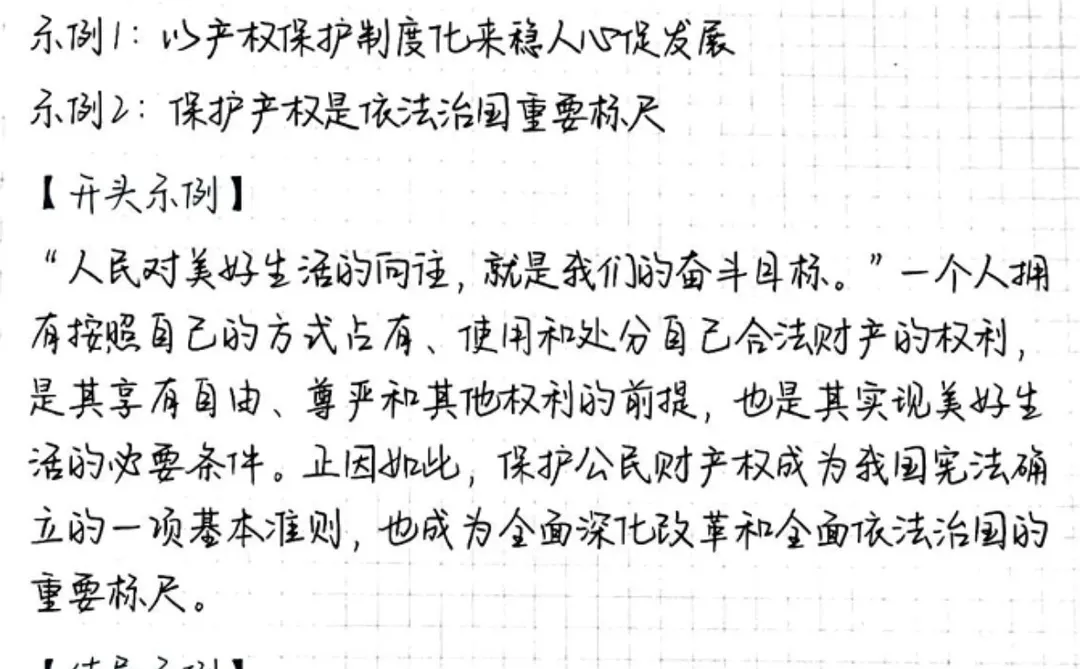 示例1：以产权保护制度化来稳人心促发展
示例2：保护产权是依法治国重要标尺
【开头示例】
“人民对美好生活的向往，就是我们的奋斗目标。”一个人拥
有按照自己的方式占有、使用和处分自己合法财产的权利，
是其享有自由、尊严和其他权利的前提，也是其实现美好生
活的必要条件。正因如此，保护公民财产权成为我国宪法确
立的一项基本准则，也成为全面深化改革和全面依法治国的
重要标尺。